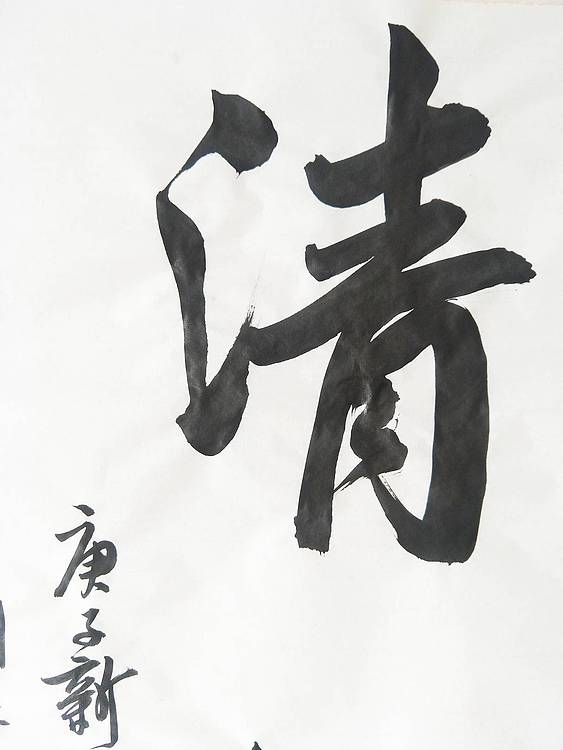 清
庚子新